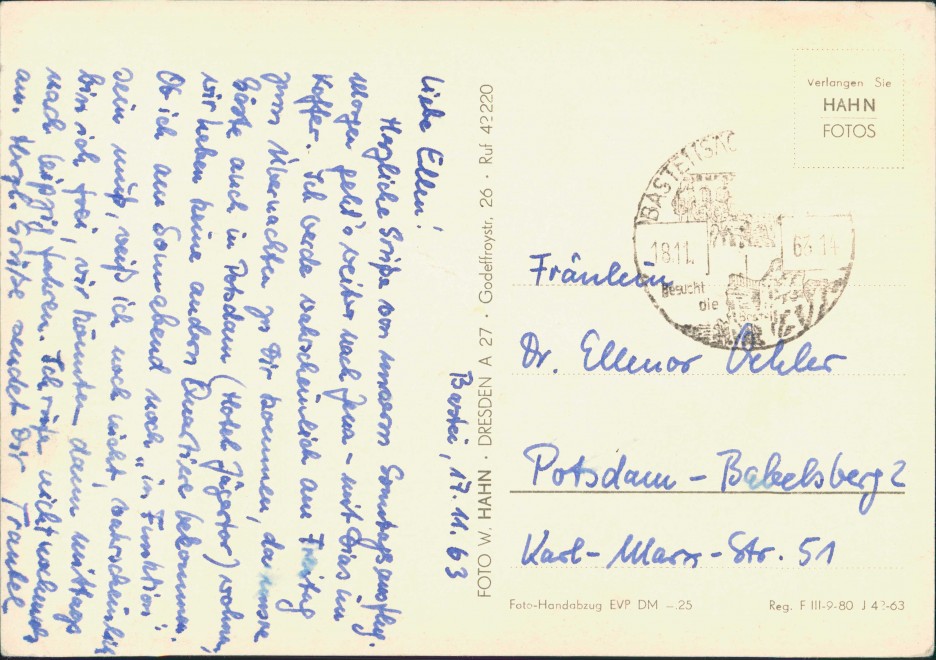 Bastei, 17.11.63
Liebe Ellen!
Herzliche Grüße von unserm Sonntagsausflug.
Morgen geht's weiter nach Jena – mit Dias im
Koffer. Ich werde wahrscheinlich am Freitag
zum Übernachten zu Dir kommen, da unsre
Gäste auch in Potsdam (Hotel Jägertor) wohnen,
wir haben keine andern Quartiere bekommen.
Ob ich am Sonnabend noch "in Funktion"
sein muß, weiß ich noch nicht, wahrscheinlich
bin ich frei, wir könnten dann mittags
nach Leipzig fahren. Ich rufe nicht nochmals
an. Herzl. Grüße sendet Dir Traudel
FOTO W. HAHN · DRESDEN A 27 · Godeffroystr. 26 · Ruf 42220
Verlangen Sie
HAHN
FOTOS
18.11. 63-14
Besucht
die
Fräulein
Dr. Ellenor Oehler
Potsdam – Babelsberg 2
Karl-Marx-Str. 51
Foto-Handabzug EVP DM –.25 Reg. F III-9-80 J 42-63